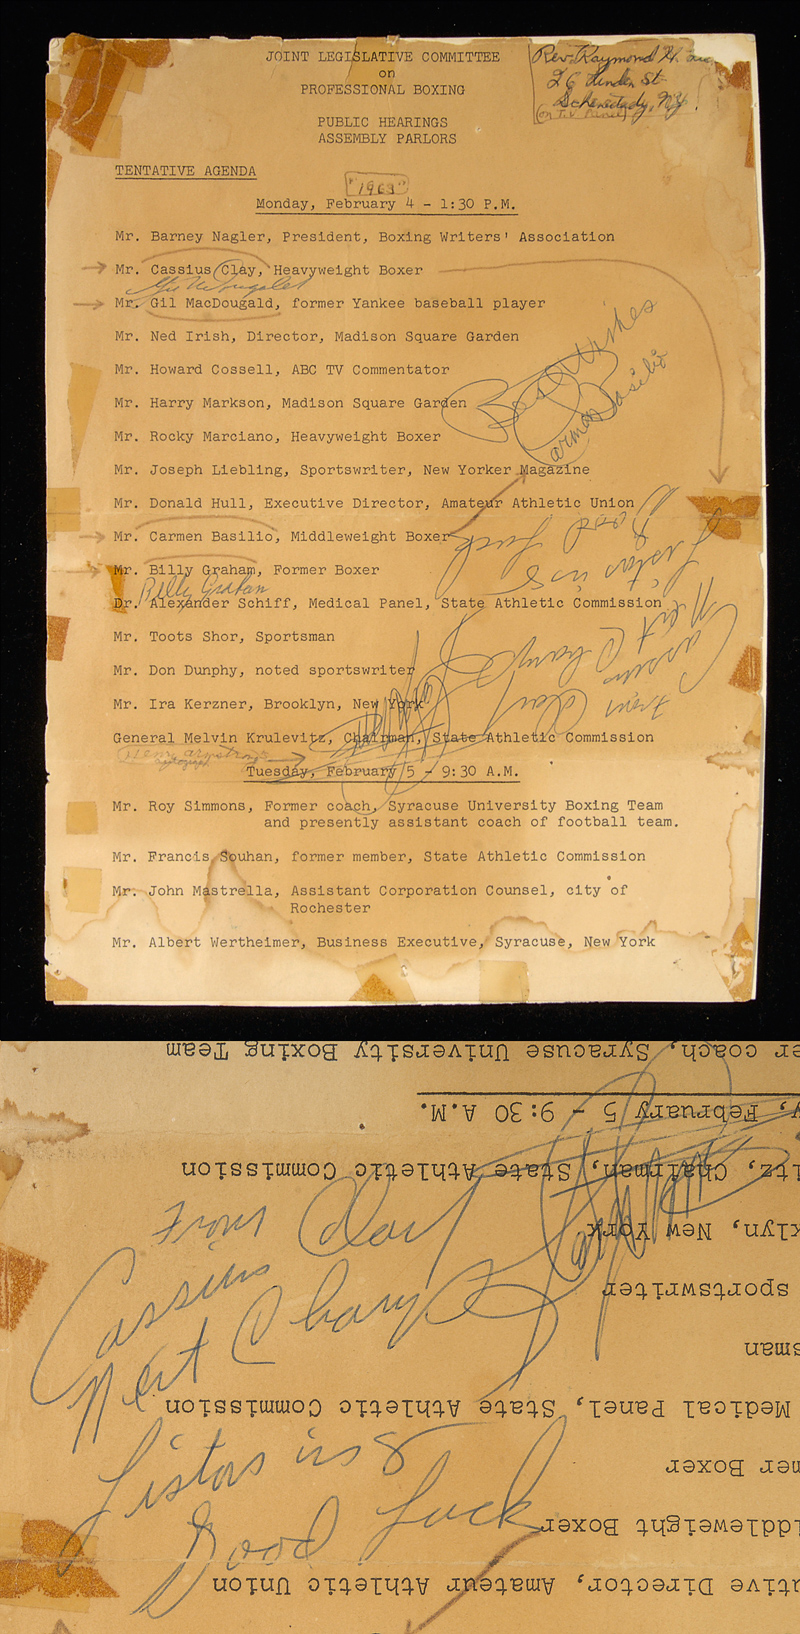 JOINT LEGISLATIVE COMMITTEE
on
PROFESSIONAL BOXING
Rev. Raymond H.
26 Linden St.
Schenectady, N.Y.
(on T.V. Panel)
PUBLIC HEARINGS
ASSEMBLY PARLORS
TENTATIVE AGENDA
"1963"
Monday, February 4 - 1:30 P.M.
Mr. Barney Nagler, President, Boxing Writers' Association
Mr. Cassius Clay, Heavyweight Boxer
Mr. Gil MacDougald, former Yankee baseball player
Mr. Ned Irish, Director, Madison Square Garden
Mr. Howard Cossell, ABC TV Commentator
Mr. Harry Markson, Madison Square Garden
Best Wishes
Carmen Basilio
Mr. Rocky Marciano, Heavyweight Boxer
Mr. Joseph Liebling, Sportswriter, New Yorker Magazine
Mr. Donald Hull, Executive Director, Amateur Athletic Union
Mr. Carmen Basilio, Middleweight Boxer
Mr. Billy Graham, Former Boxer
Billy Graham
Dr. Alexander Schiff, Medical Panel, State Athletic Commission
Mr. Toots Shor, Sportsman
Mr. Don Dunphy, noted sportswriter
Mr. Ira Kerzner, Brooklyn, New York
General Melvin Krulevitz, Chairman, State Athletic Commission
Henry Armstrong
autograph
From
Cassius Clay
Next Champ
Liston in 8
Good Luck
Tuesday, February 5 - 9:30 A.M.
Mr. Roy Simmons, Former coach, Syracuse University Boxing Team
and presently assistant coach of football team.
Mr. Francis Souhan, former member, State Athletic Commission
Mr. John Mastrella, Assistant Corporation Counsel, city of
Rochester
Mr. Albert Wertheimer, Business Executive, Syracuse, New York
er coach, Syracuse University Boxing Team
y, February 5 - 9:30 A.M.
itz, Chairman, State Athletic Commission
From
klyn, New York
Cassius Clay
sportswriter
Next Champ
sman
Medical Panel, State Athletic Commission
Liston in 8
mer Boxer
Good Luck
ddleweight Boxer
utive Director, Amateur Athletic Union